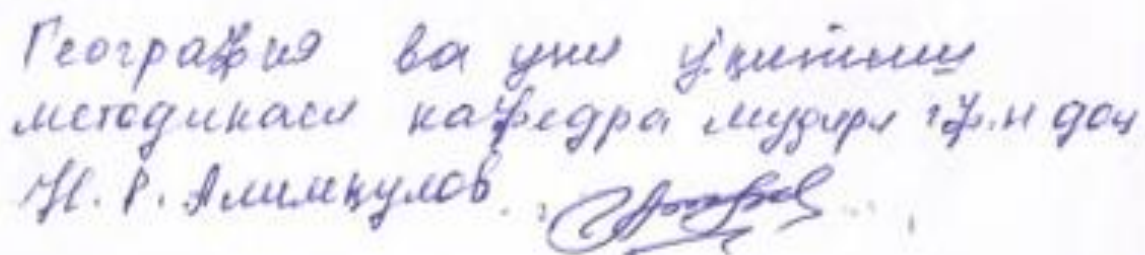 География ва уни ўқитиш
методикаси кафедра мудири г.ф.н доц
Н. Р. Алимқулов